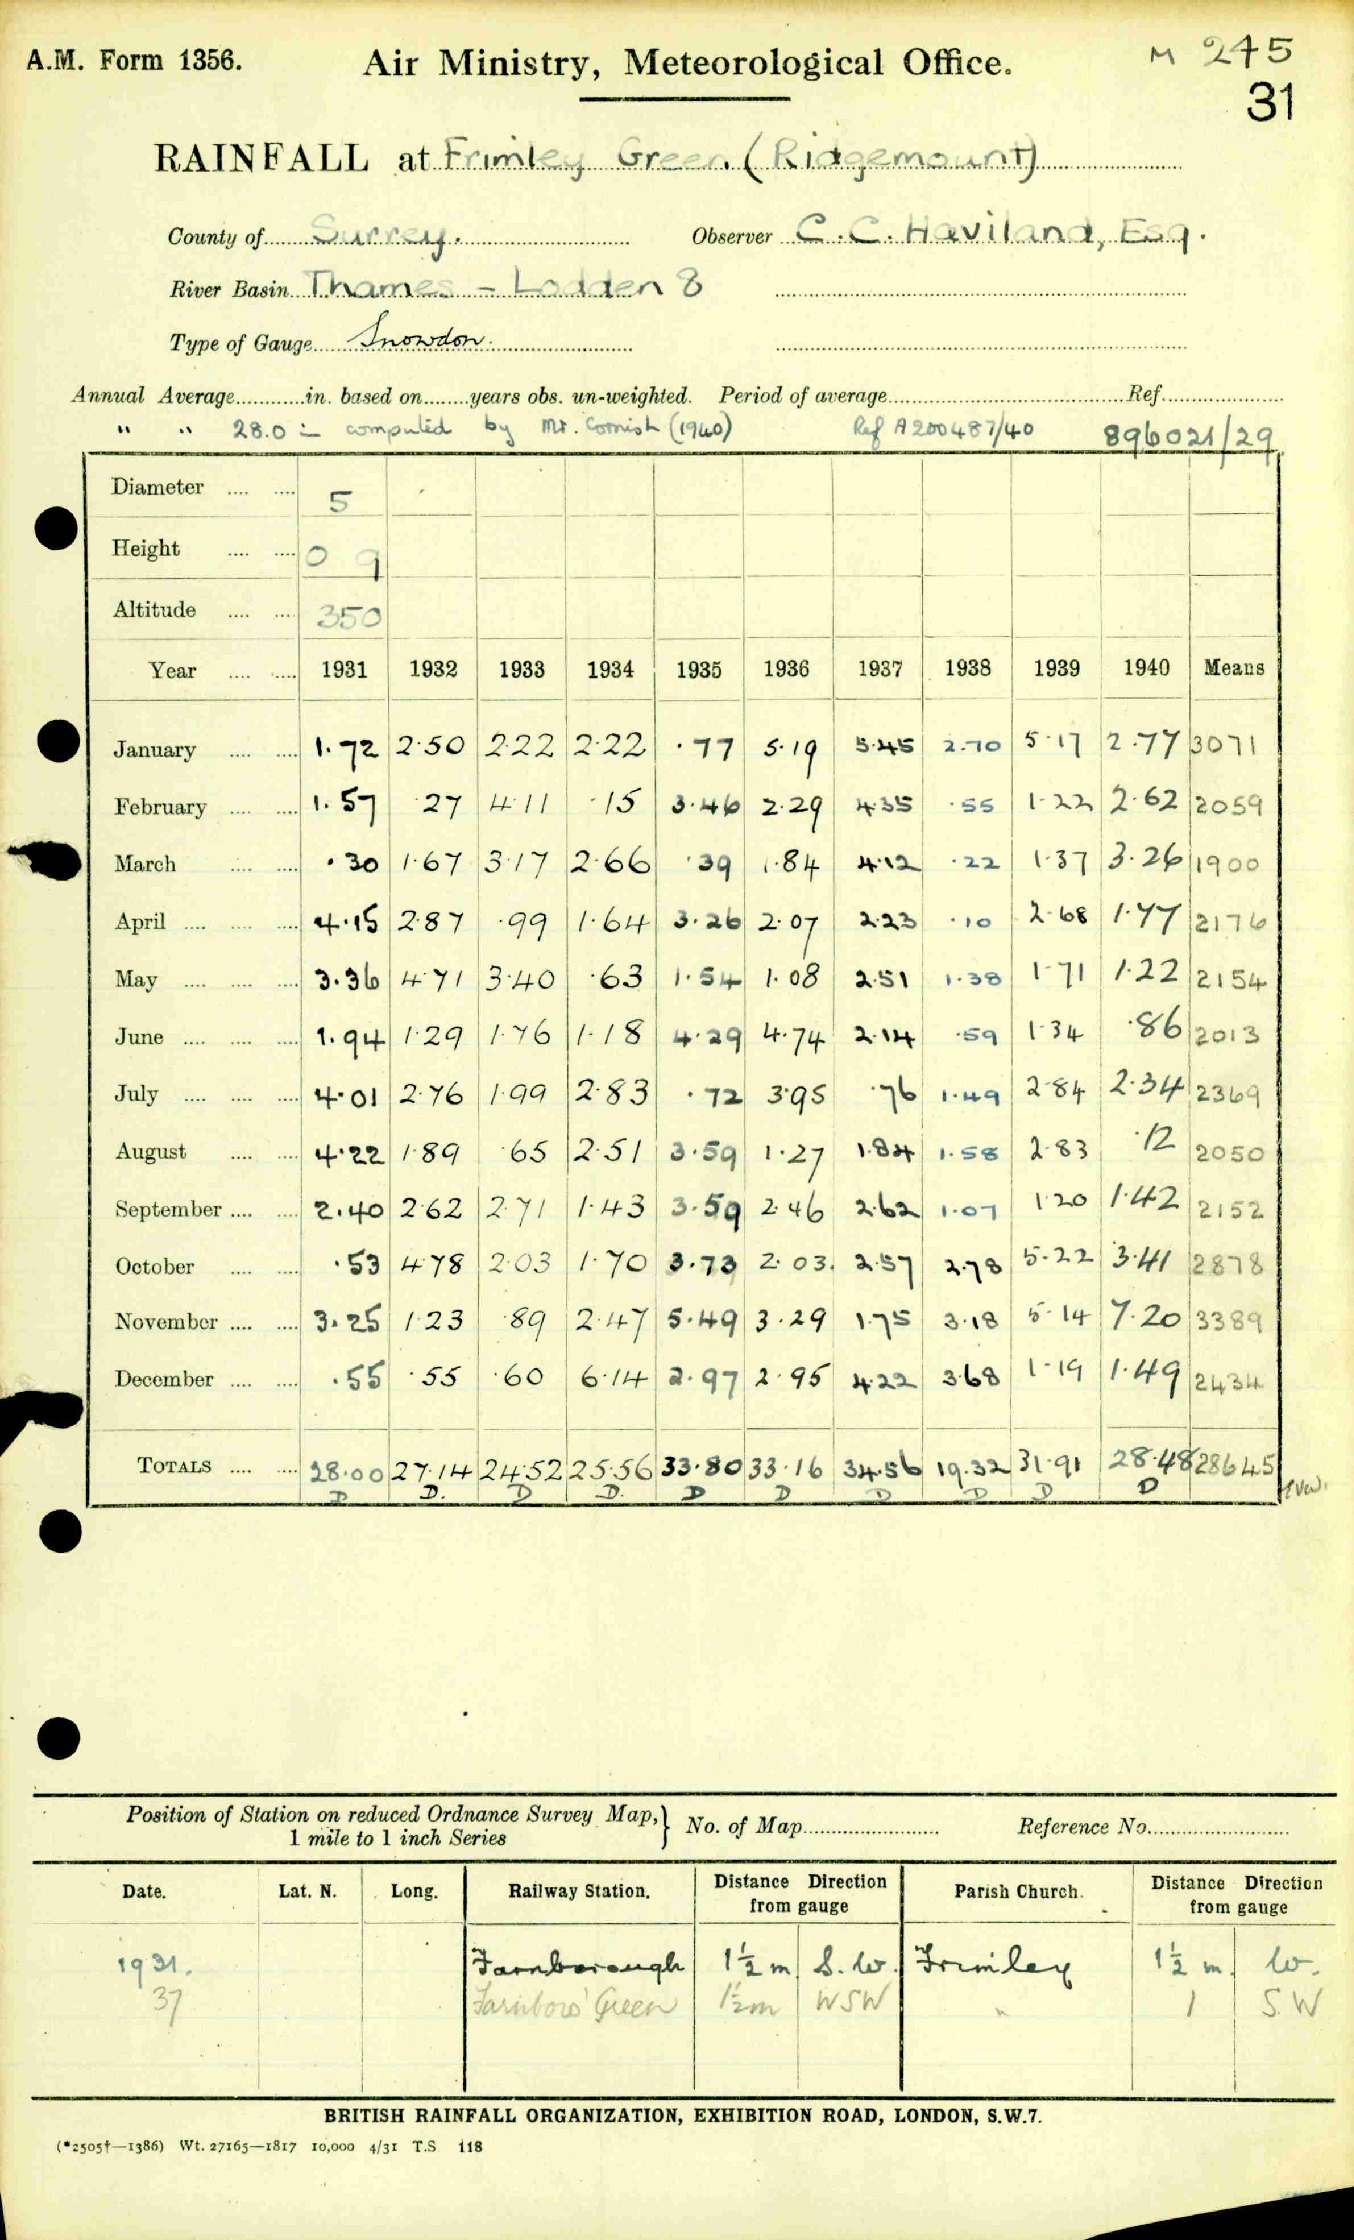 A.M. Form 1356. Air Ministry, Meteorological Office. M 245
31
RAINFALL at Frimley Green (Ridgemount)
County of Surrey. Observer C. C. Haviland, Esq.
River Basin Thames - Lodden 8
Type of Gauge Snowdon.
Annual Average in. based on years obs. un-weighted. Period of average Ref.
" " 28.0 in computed by Mr. Cornish (1940) Ref A200487/40 896021/29
Diameter 5
Height 0 9
Altitude 350
Year 1931 1932 1933 1934 1935 1936 1937 1938 1939 1940 Means
January 1.72 2.50 2.22 2.22 .77 5.19 5.45 2.70 5.17 2.77 3071
February 1.57 .27 4.11 .15 3.46 2.29 4.35 .55 1.22 2.62 2059
March .30 1.67 3.17 2.66 .39 1.84 4.12 .22 1.37 3.26 1900
April 4.15 2.87 .99 1.64 3.26 2.07 2.23 .10 2.68 1.77 2176
May 3.36 4.71 3.40 .63 1.54 1.08 2.51 1.38 1.71 1.22 2154
June 1.94 1.29 1.76 1.18 4.29 4.74 2.14 .59 1.34 .86 2013
July 4.01 2.76 1.99 2.83 .72 3.95 .76 1.49 2.84 2.34 2369
August 4.22 1.89 .65 2.51 3.59 1.27 1.84 1.58 2.83 .12 2050
September 2.40 2.62 2.71 1.43 3.59 2.46 2.62 1.07 1.20 1.42 2152
October .53 4.78 2.03 1.70 3.73 2.03. 2.57 2.78 5.22 3.41 2878
November 3.25 1.23 .89 2.47 5.49 3.29 1.75 3.18 5.14 7.20 3389
December .55 .55 .60 6.14 2.97 2.95 4.22 3.68 1.19 1.49 2434
TOTALS 28.00 27.14 24.52 25.56 33.80 33.16 34.56 19.32 31.91 28.48 28645
D D. D D. D D D D D D
Position of Station on reduced Ordnance Survey Map, } No. of Map Reference No.
1 mile to 1 inch Series
Date. Lat. N. Long. Railway Station. Distance Direction from gauge Parish Church. Distance Direction from gauge
1931. Farnborough 1½ m S. W. Frimley 1½ m. W.
37 Farnboro' Green 1½m WSW " 1 S.W
BRITISH RAINFALL ORGANIZATION, EXHIBITION ROAD, LONDON, S.W.7.
(*2505†—1386) Wt. 27165—1817 10,000 4/31 T.S 118